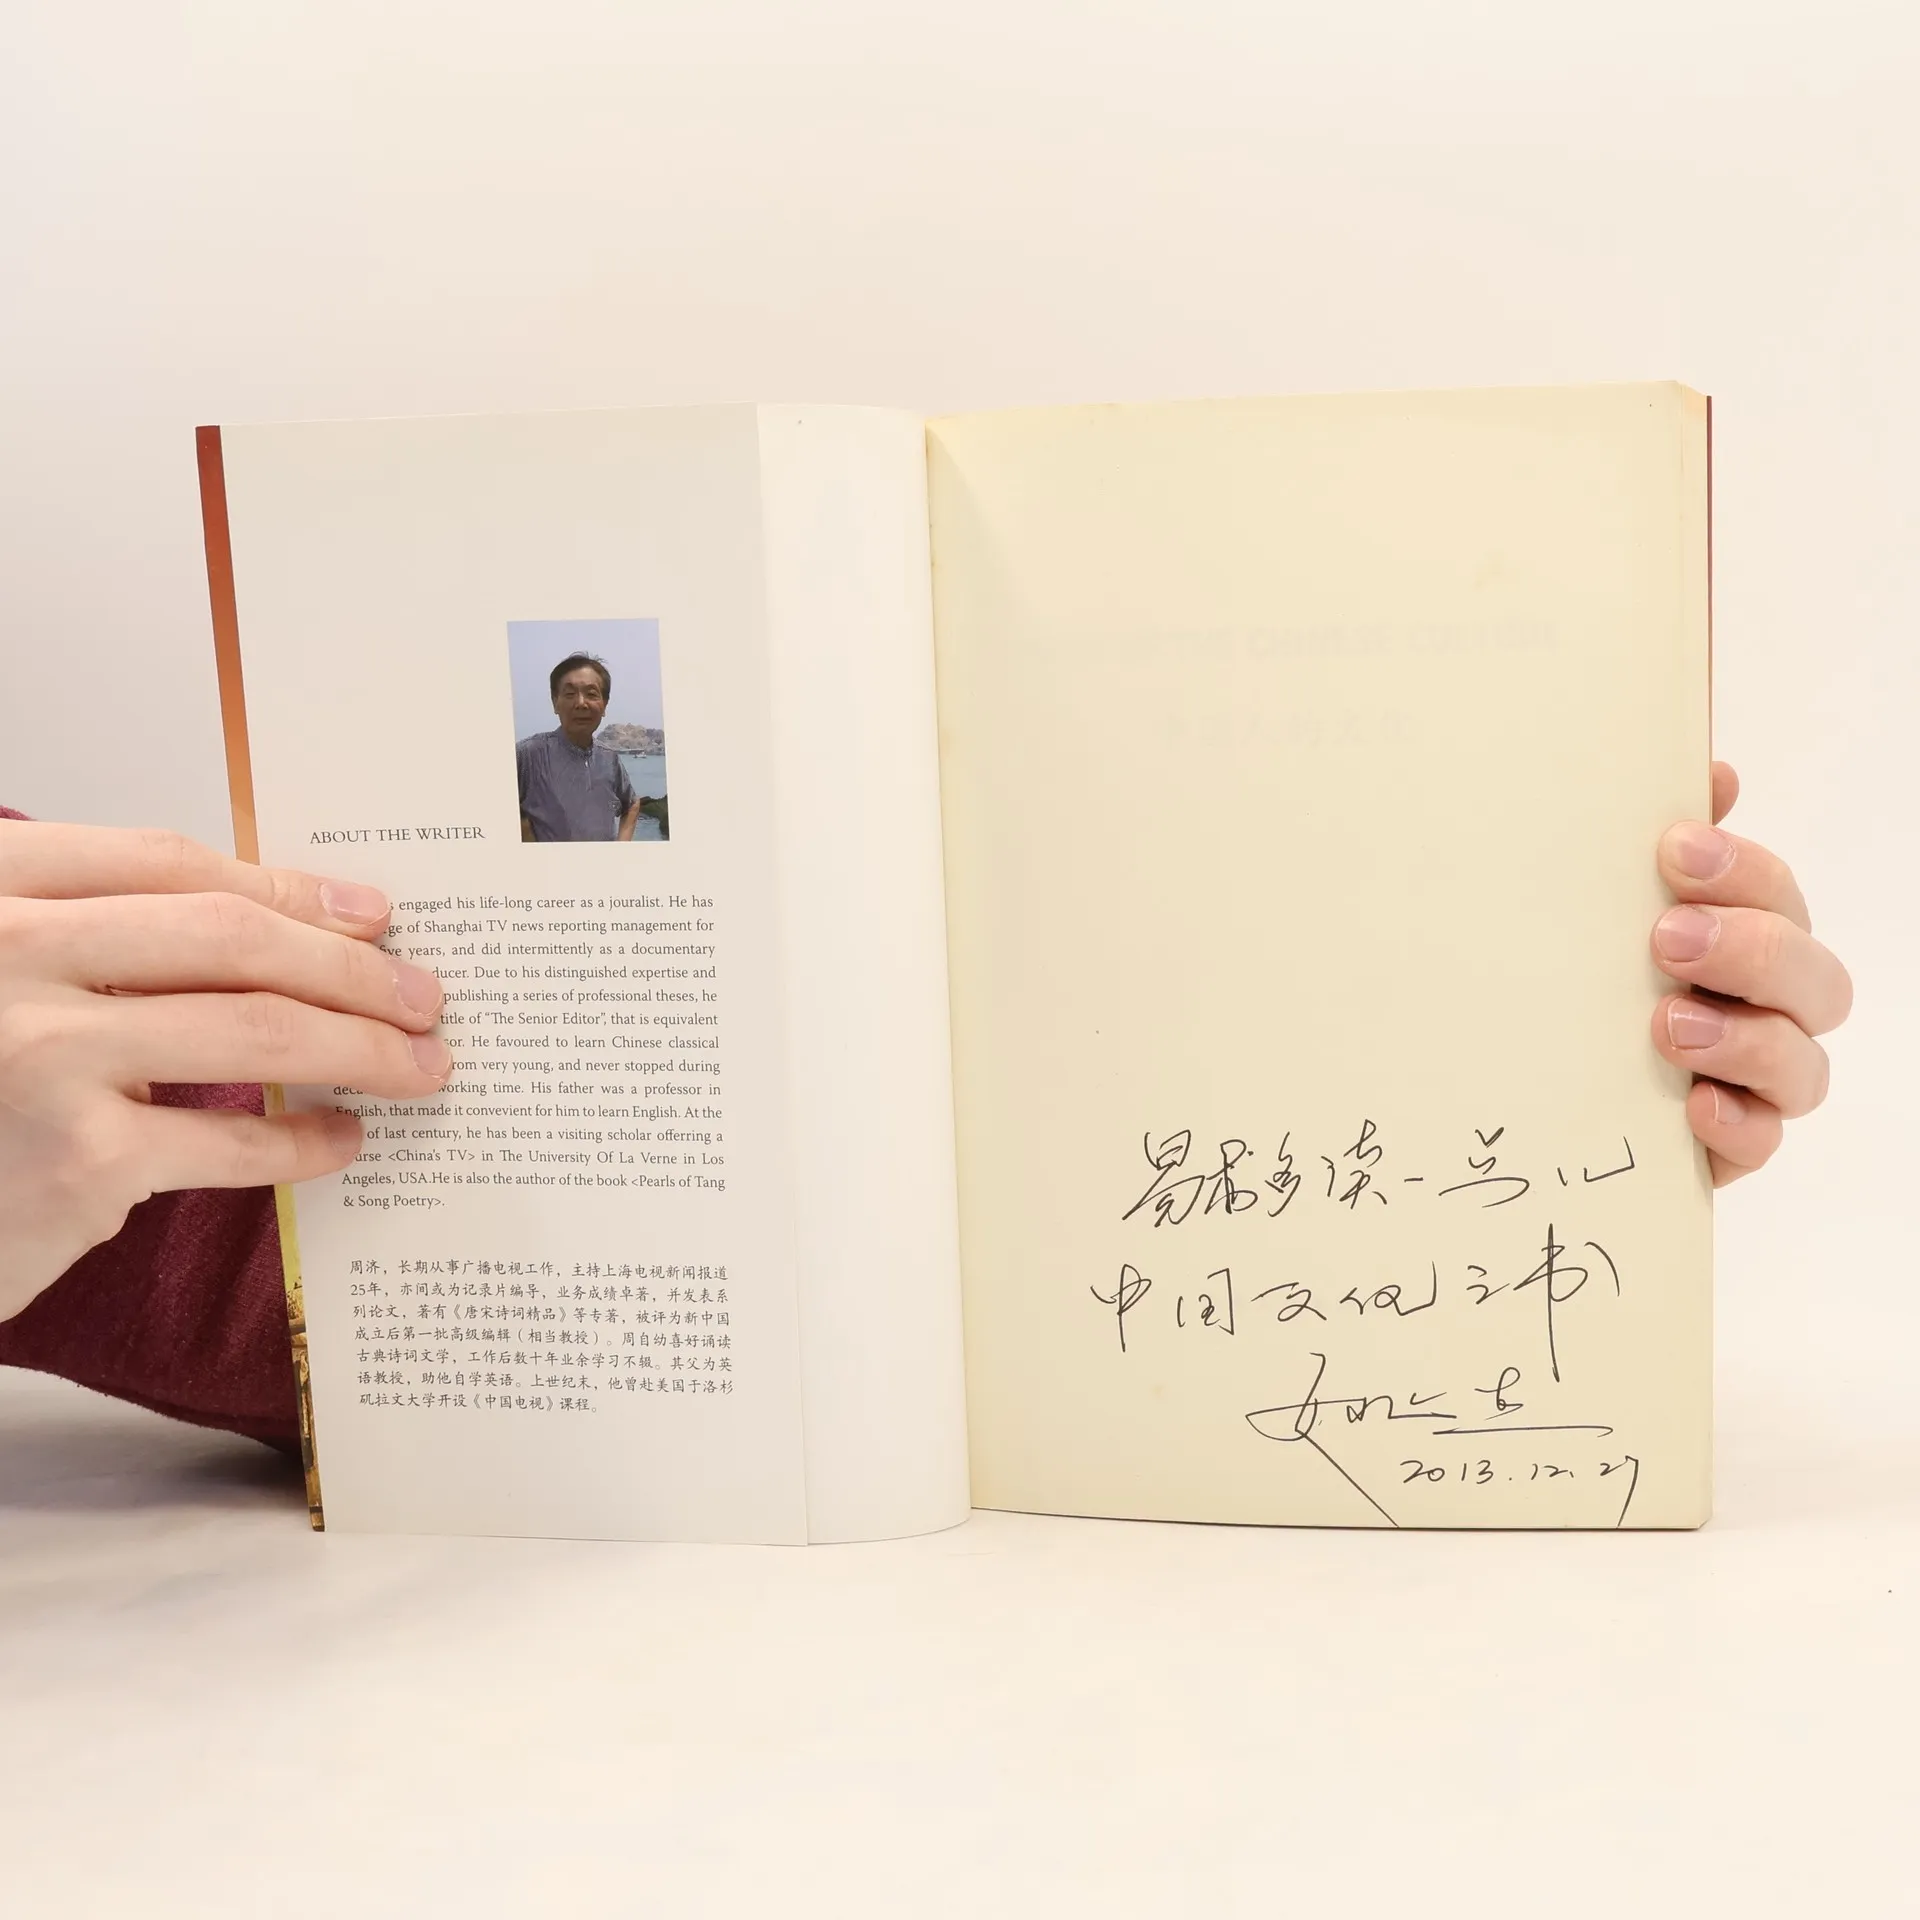 ABOUT THE WRITER
engaged his life-long career as a jouralist. He has
of Shanghai TV news reporting management for
five years, and did intermittently as a documentary
Due to his distinguished expertise and
publishing a series of professional theses, he
title of “The Senior Editor”, that is equivalent
He favoured to learn Chinese classical
from very young, and never stopped during
working time. His father was a professor in
English, that made it convevient for him to learn English. At the
of last century, he has been a visiting scholar offerring a
<China's TV> in The University Of La Verne in Los
Angeles, USA.He is also the author of the book <Pearls of Tang
& Song Poetry>.
周济，长期从事广播电视工作，主持上海电视新闻报道
25年，亦间或为记录片编导，业务成绩卓著，并发表系
列论文，著有《唐宋诗词精品》等专著，被评为新中国
成立后第一批高级编辑（相当教授）。周自幼喜好诵读
古典诗词文学，工作后数十年业余学习不辍。其父为英
语教授，助他自学英语。上世纪末，他曾赴美国于洛杉
矶拉文大学开设《中国电视》课程。
多读一些
中国文化之书
2013.12.27